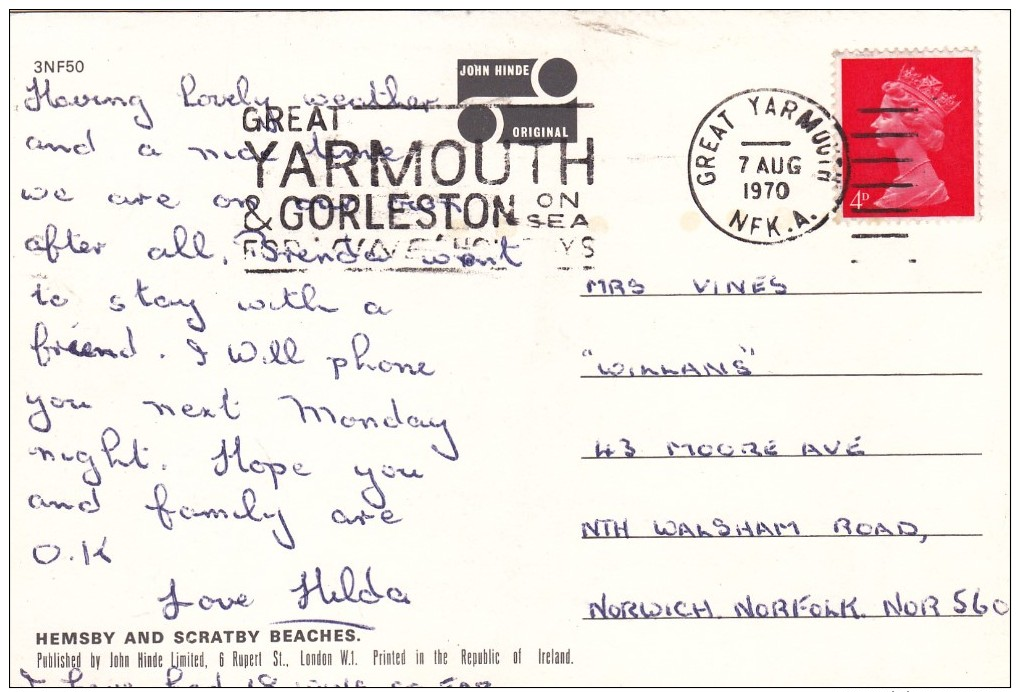 3NF50
JOHN HINDE
ORIGINAL
Having lovely weather
and a nice time
we are on our
after all. Brenda went
to stay with a
friend. I will phone
you next Monday
night. Hope you
and family are
O.K
Love Hilda
GREAT
YARMOUTH
& GORLESTON ON
SEA
GREAT YARMOUTH
7 AUG
1970
NFK.A.
4D
MRS VINES
"WILLANS"
43 MOORE AVE
NTH WALSHAM ROAD,
NORWICH. NORFOLK. NOR 560
HEMSBY AND SCRATBY BEACHES.
Published by John Hinde Limited, 6 Rupert St., London W.1. Printed in the Republic of Ireland.
I have had 18